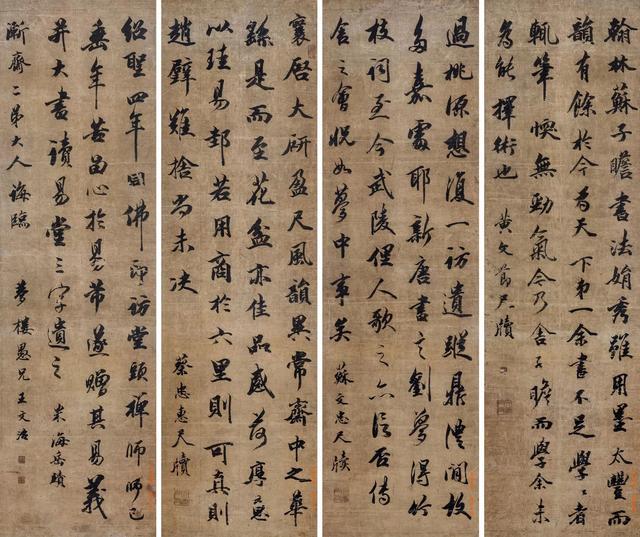 翰林蘇子瞻書法娟秀雖用墨太豐而
韻有餘於今為天下第一余書不足學學者
輒筆愞無勁氣今乃舍子瞻而學余未
為能擇術也
黃文節尺牘
過桃源想復一訪遺蹤鼎澧間故
多嘉處耶新唐書言劉夢得竹
枝詞至今武陵俚人歌之亦信否傳
舍之會怳如夢中事矣
蘇文忠尺牘
襄啓大研盈尺風韻異常齋中之華
繇是而至花盆亦佳品感荷厚意
以珪易邽若用商於六里則可真則
趙璧難捨尚未決
蔡忠惠尺牘
紹聖四年自佛印訪堂頭禪師師已
垂年苦留心於易常遂贈其易義
并大書讀易堂三字遺之
米海岳蹟
漸齋二弟大人誨臨
夢樓愚兄王文治